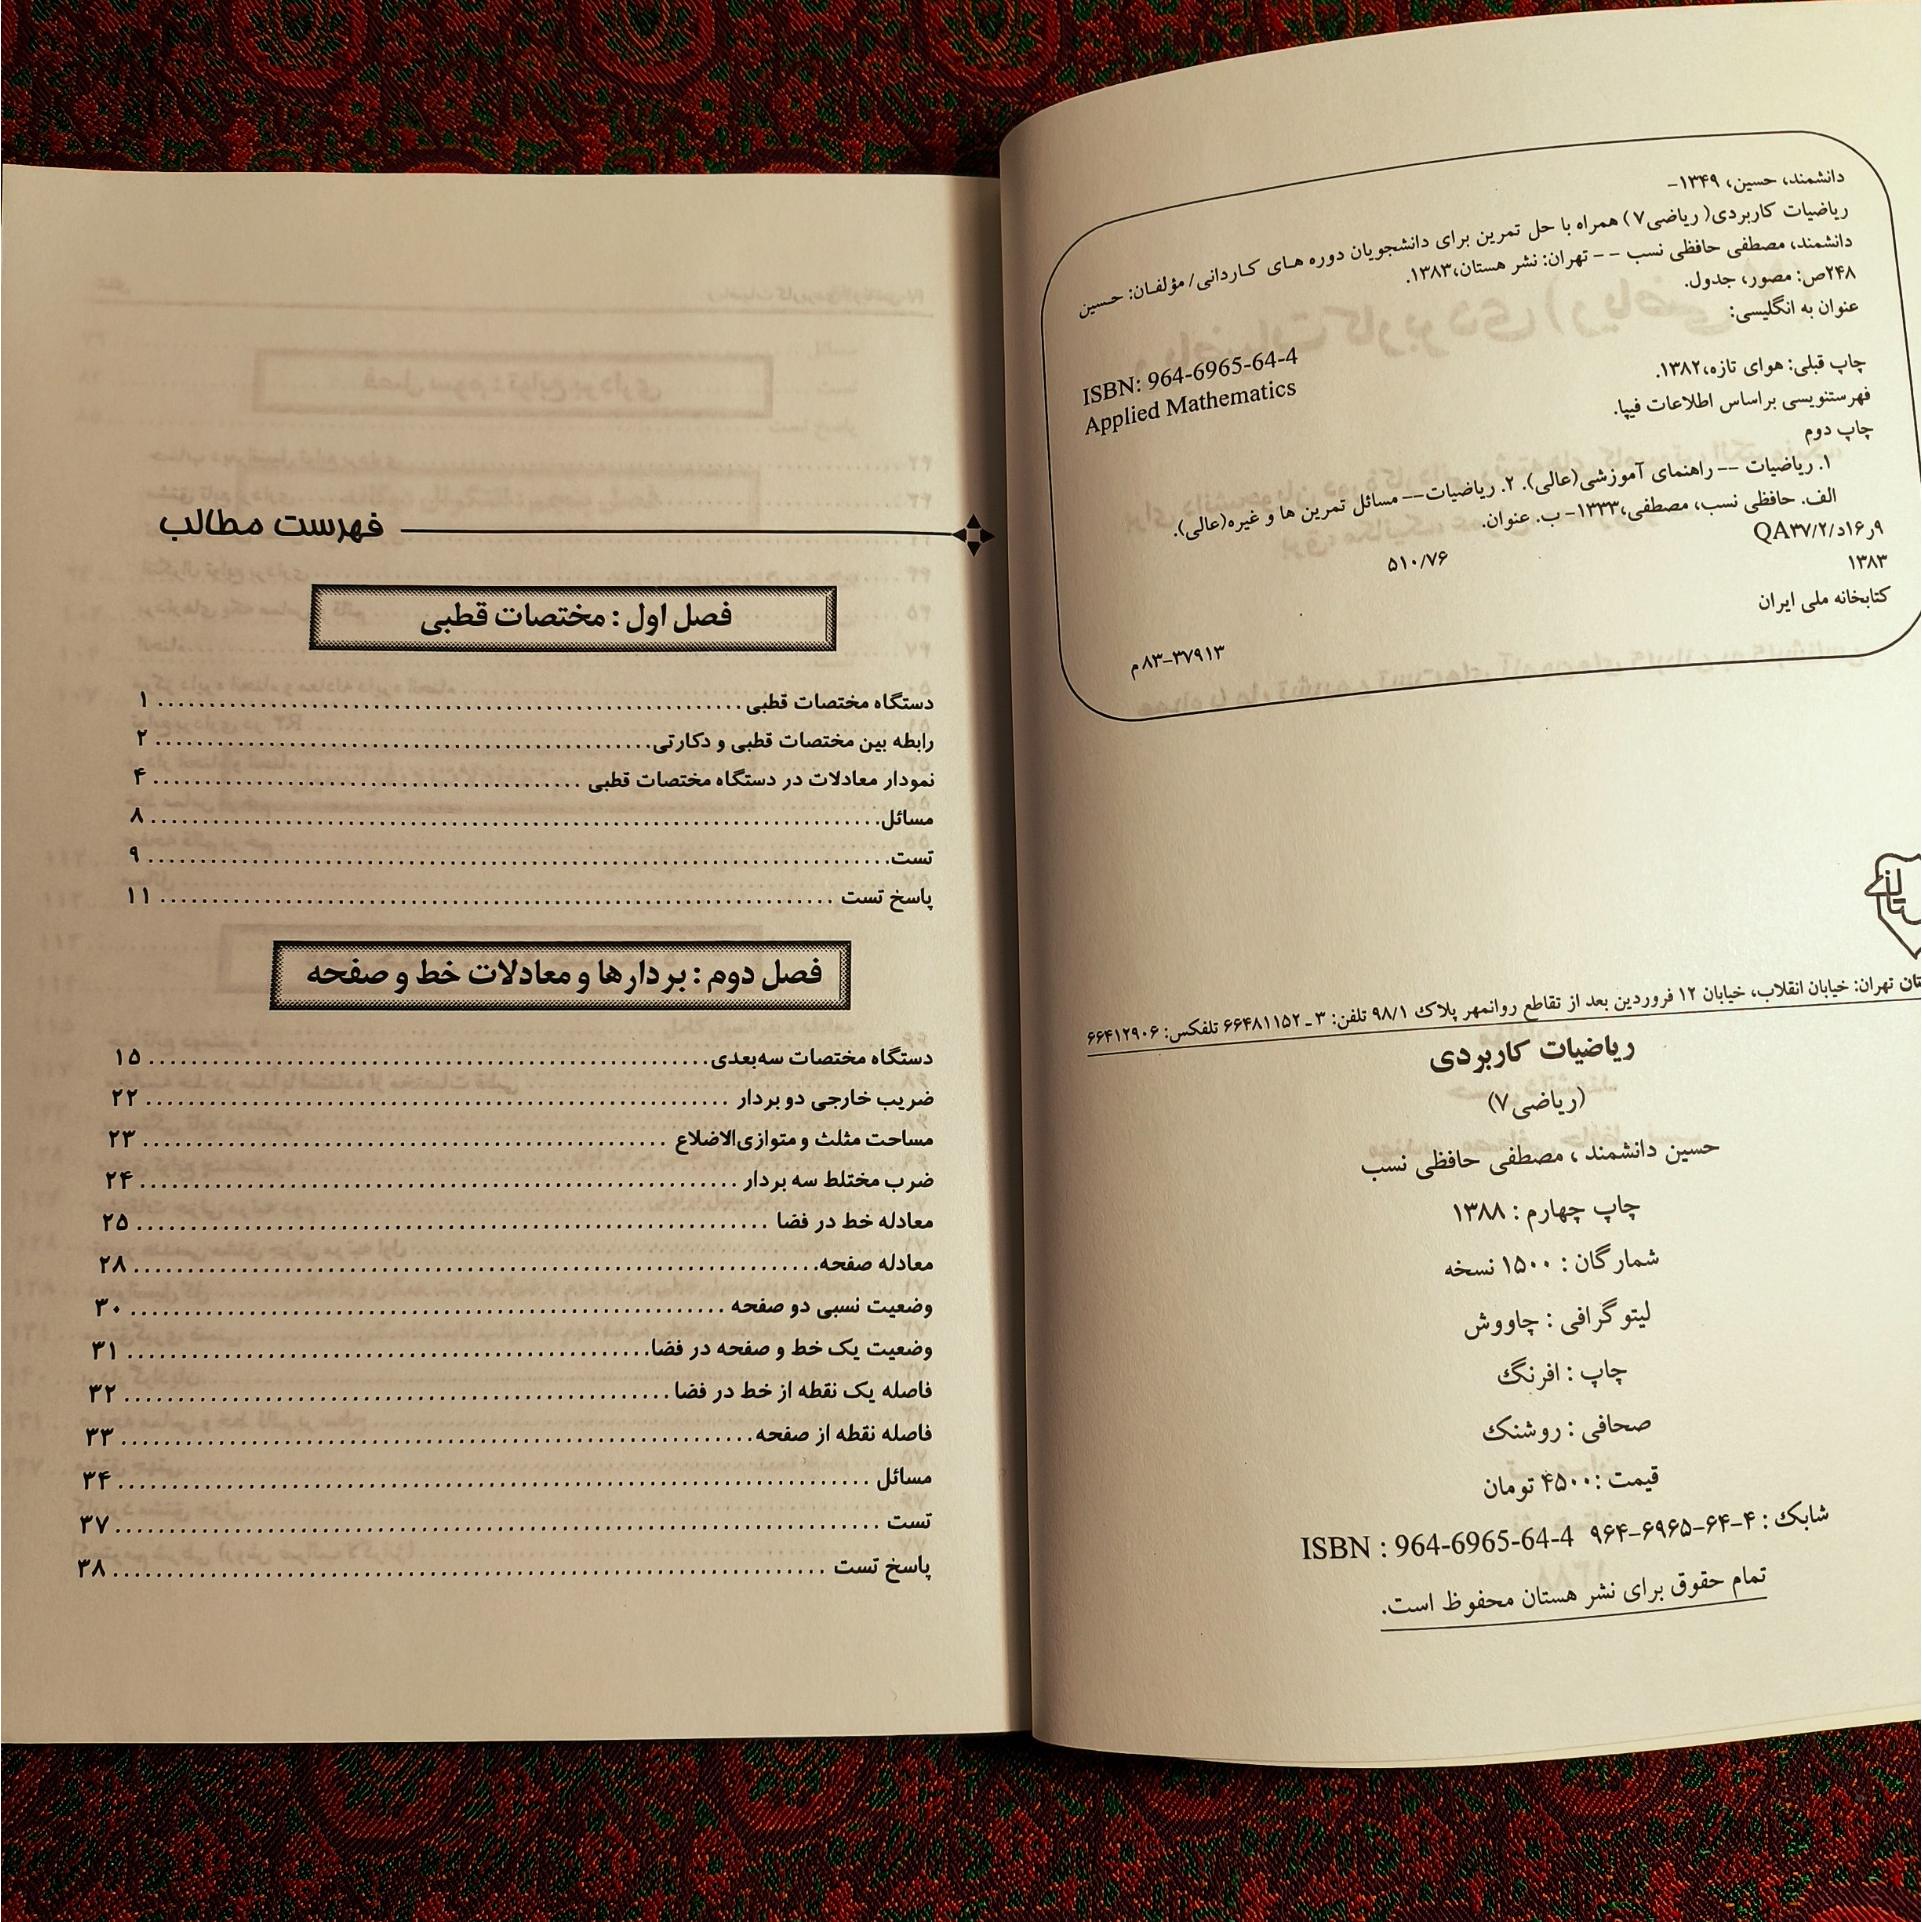 دانشمند، حسین، ۱۳۴۹-
ریاضیات کاربردی( ریاضی۷) همراه با حل تمرین برای دانشجویان دوره های کاردانی/ مؤلفان: حسین
دانشمند، مصطفی حافظی نسب -- تهران: نشر هستان،۱۳۸۳.
۲۴۸ص: مصور، جدول.
عنوان به انگلیسی:
ISBN: 964-6965-64-4
Applied Mathematics
چاپ قبلی: هوای تازه،۱۳۸۲.
فهرستنویسی براساس اطلاعات فیپا.
چاپ دوم
۱. ریاضیات -- راهنمای آموزشی(عالی). ۲. ریاضیات-- مسائل تمرین ها و غیره(عالی).
الف. حافظی نسب، مصطفی،۱۳۳۳- ب. عنوان.
۹ر۱۶د/۳۷/۲QA
۵۱۰/۷۶
۱۳۸۳
کتابخانه ملی ایران
۸۳-۳۷۹۱۳م
تهران: خیابان انقلاب، خیابان ۱۲ فروردین بعد از تقاطع روانمهر پلاک ۹۸/۱ تلفن: ۳ ـ ۶۶۴۸۱۱۵۲ تلفکس: ۶۶۴۱۲۹۰۶
ریاضیات کاربردی
(ریاضی۷)
حسین دانشمند ، مصطفی حافظی نسب
چاپ چهارم : ۱۳۸۸
شمارگان : ۱۵۰۰ نسخه
لیتوگرافی : چاووش
چاپ : افرنگ
صحافی : روشنک
قیمت :۴۵۰۰ تومان
شابک : ۴-۶۴-۶۹۶۵-۹۶۴ ISBN : 964-6965-64-4
تمام حقوق برای نشر هستان محفوظ است.
فهرست مطالب
فصل اول : مختصات قطبی
دستگاه مختصات قطبی ۱
رابطه بین مختصات قطبی و دکارتی ۲
نمودار معادلات در دستگاه مختصات قطبی ۴
مسائل ۸
تست ۹
پاسخ تست ۱۱
فصل دوم : بردارها و معادلات خط و صفحه
دستگاه مختصات سه‌بعدی ۱۵
ضریب خارجی دو بردار ۲۲
مساحت مثلث و متوازی‌الاضلاع ۲۳
ضرب مختلط سه بردار ۲۴
معادله خط در فضا ۲۵
معادله صفحه ۲۸
وضعیت نسبی دو صفحه ۳۰
وضعیت یک خط و صفحه در فضا ۳۱
فاصله یک نقطه از خط در فضا ۳۲
فاصله نقطه از صفحه ۳۳
مسائل ۳۴
تست ۳۷
پاسخ تست ۳۸